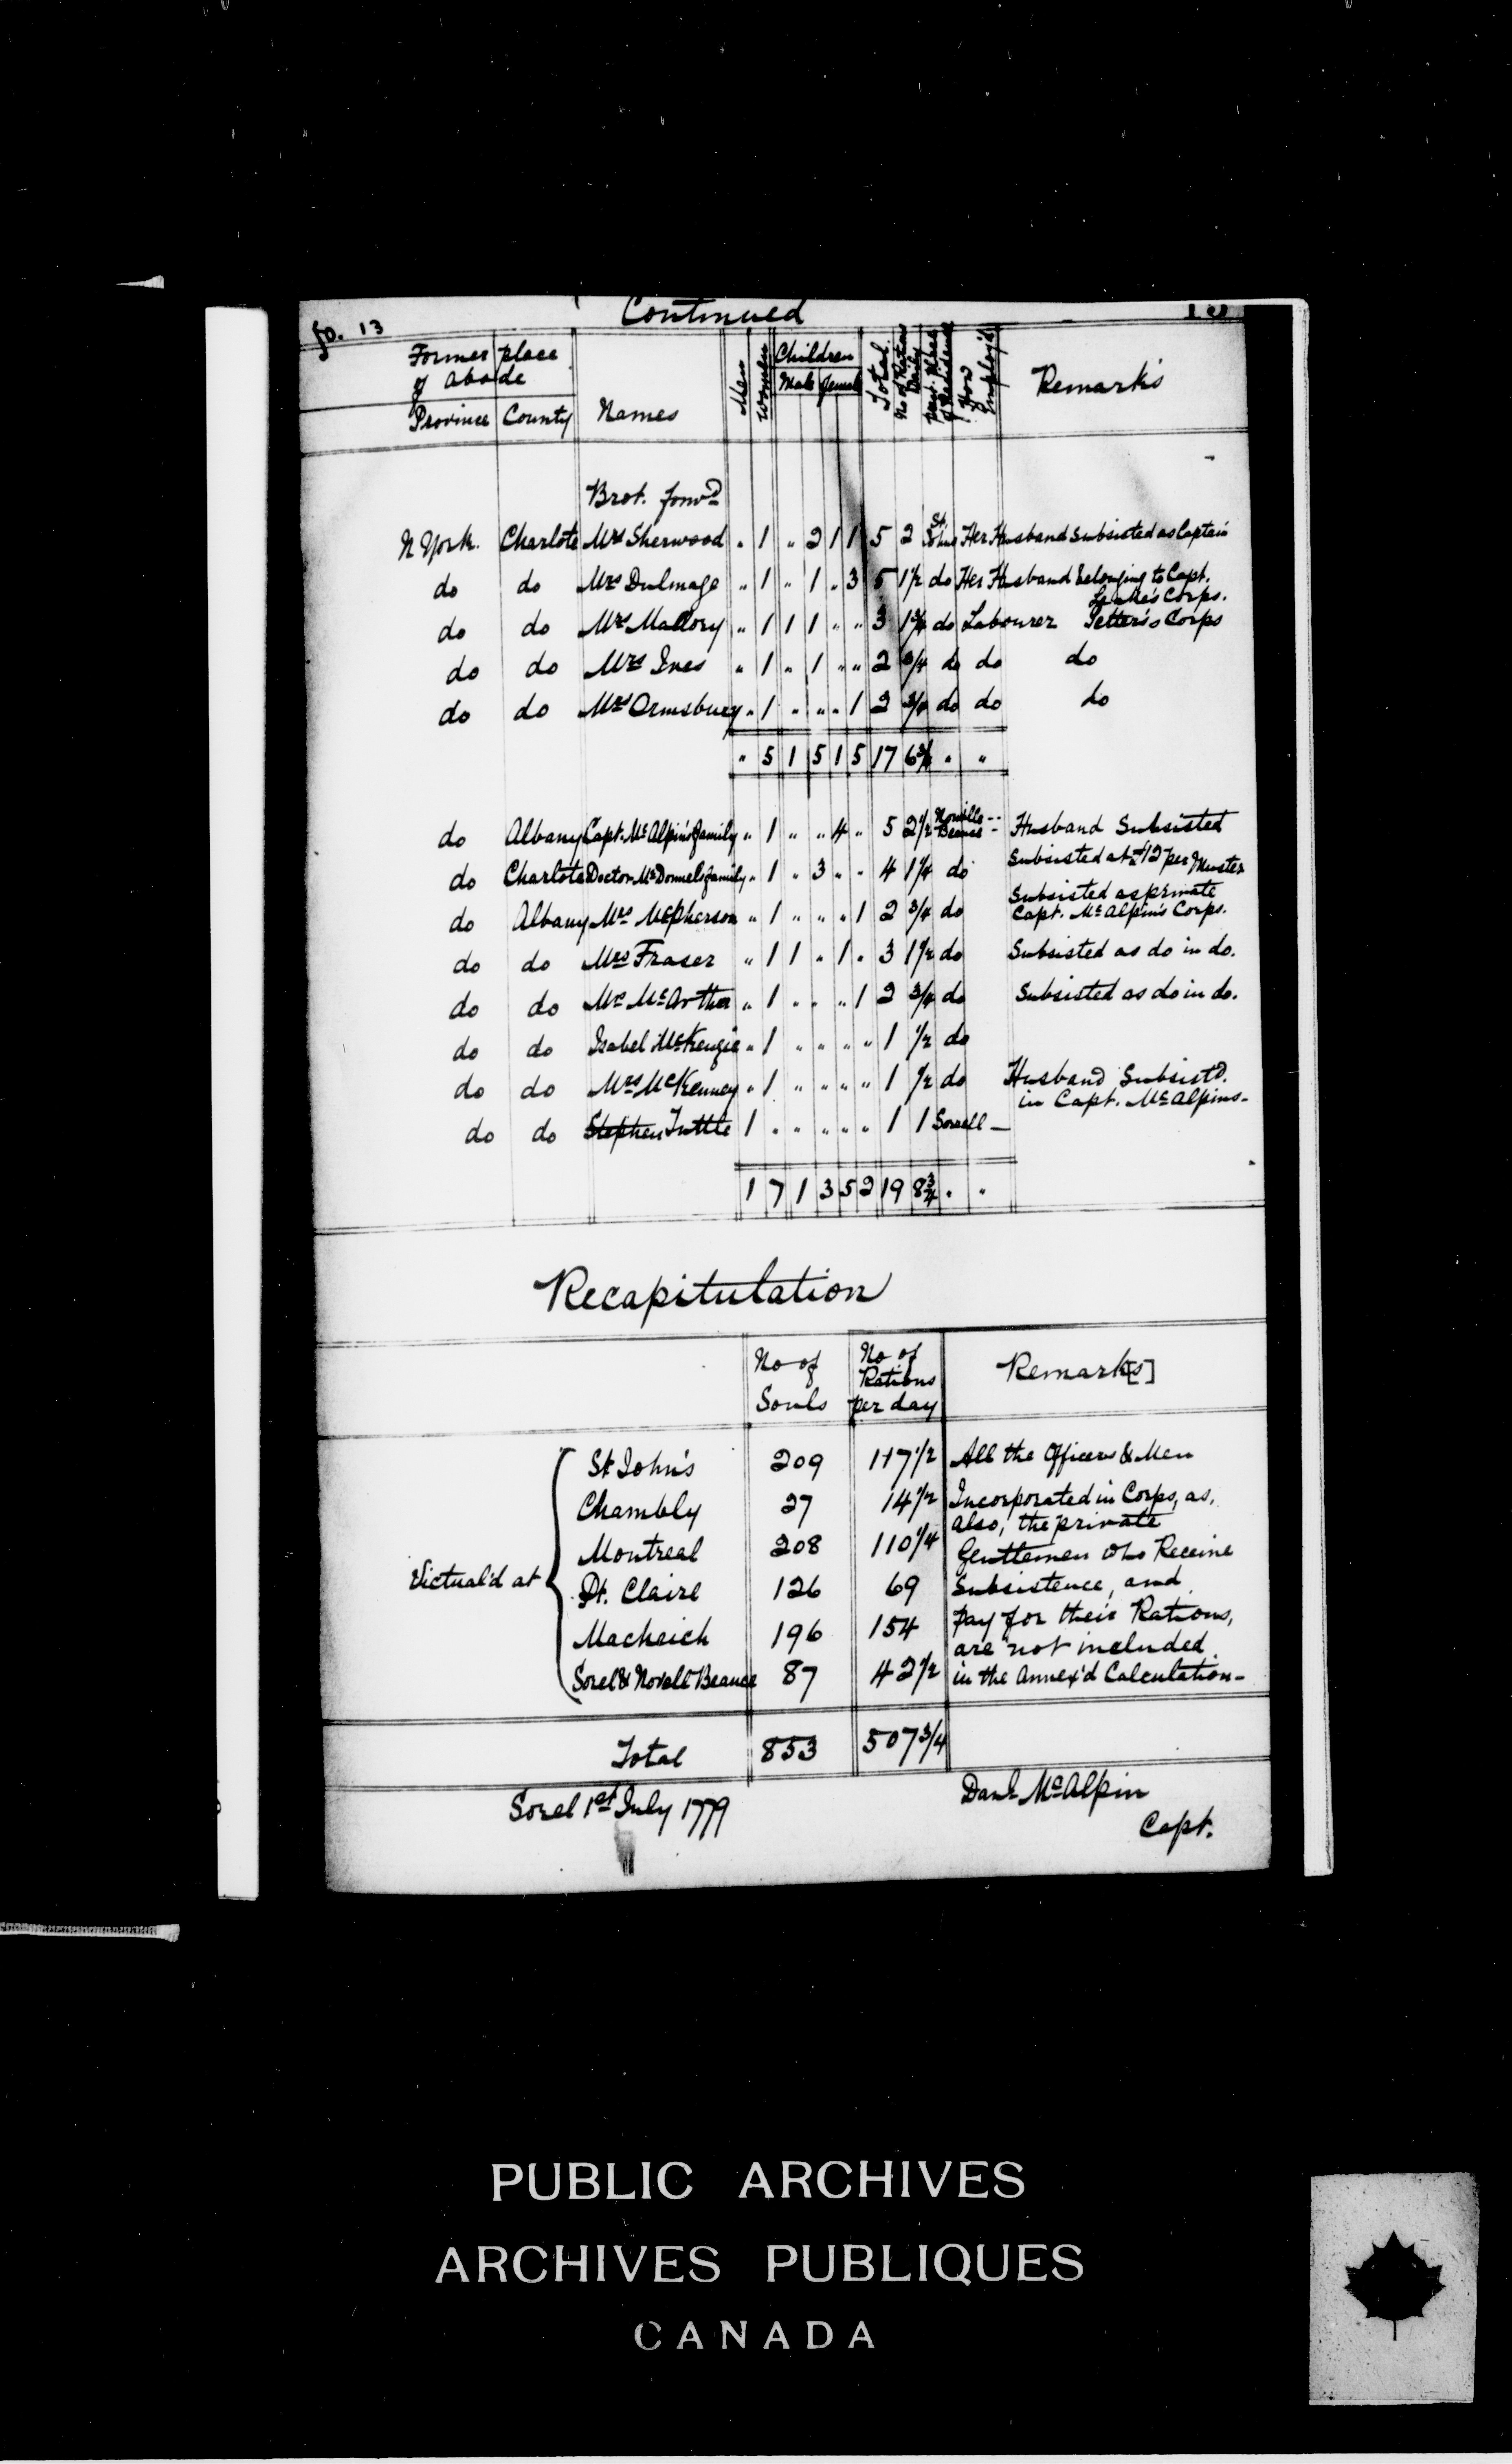 Continued
fo. 13
Former place of abode
Province County Names Men Women Children Male female Total No of Rations Daily pres. Place of Residence How Employ'd Remarks
Brot. forwd
N York. Charlote Mrs Sherwood " 1 " 2 1 1 5 2 St. Johns Her Husband Subsisted as Captain
do do Mrs Dulmage " 1 " 1 " 3 5 1½ do Her Husband belonging to Capt. Leake's Corps.
do do Mrs Mallory " 1 1 1 " " 3 1¾ do Labourer Petters's Corps
do do Mrs Ives " 1 " 1 " " 2 ¾ do do do
do do Mrs Ormsbury " 1 " " " 1 2 ¾ do do do
" 5 1 5 1 5 17 6¾ " "
do Albany Capt. McAlpin's family " 1 " " 4 " 5 2½ Novills Beance Husband Subsisted
do Charlote Doctor McDonnels family " 1 " 3 " " 4 1¼ do Subsisted at 12 per Muster
do Albany Mrs McPherson " 1 " " " 1 2 ¾ do Subsisted as private Capt. McAlpin's Corps.
do do Mrs Fraser " 1 1 " 1 " 3 1½ do Subsisted as do in do.
do do Mrs McArthur " 1 " " " 1 2 ¾ do Subsisted as do in do.
do do Isabel McKenzie " 1 " " " " 1 ½ do
do do Mrs McKenney " 1 " " " " 1 ½ do Husband Subsistd. in Capt. McAlpins-
do do Stephen Tuttle 1 " " " " " 1 1 Sorell —
1 7 1 3 5 2 19 8¾ " "
Recapitulation
No of Souls No of Rations per day Remark[s]
Victual'd at
St John's 209 117½ All the Officers & Men
Chambly 27 14½ Incorporated in Corps, as, also, the private
Montreal 208 110¼ Gentlemen who Receive
Pt. Claire 126 69 Subsistence, and
Machaich 196 154 pay for their Rations, are not included
Sorel & Novell Beance 87 42½ in the Annex'd Calculation-
Total 853 507¾
Sorel 1st July 1779
Danl McAlpin
Capt.
PUBLIC ARCHIVES
ARCHIVES PUBLIQUES
CANADA